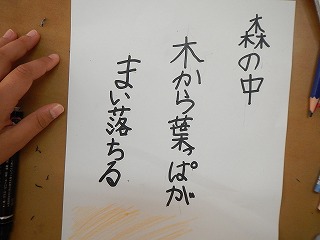 森の中
木から葉っぱが
まい落ちる